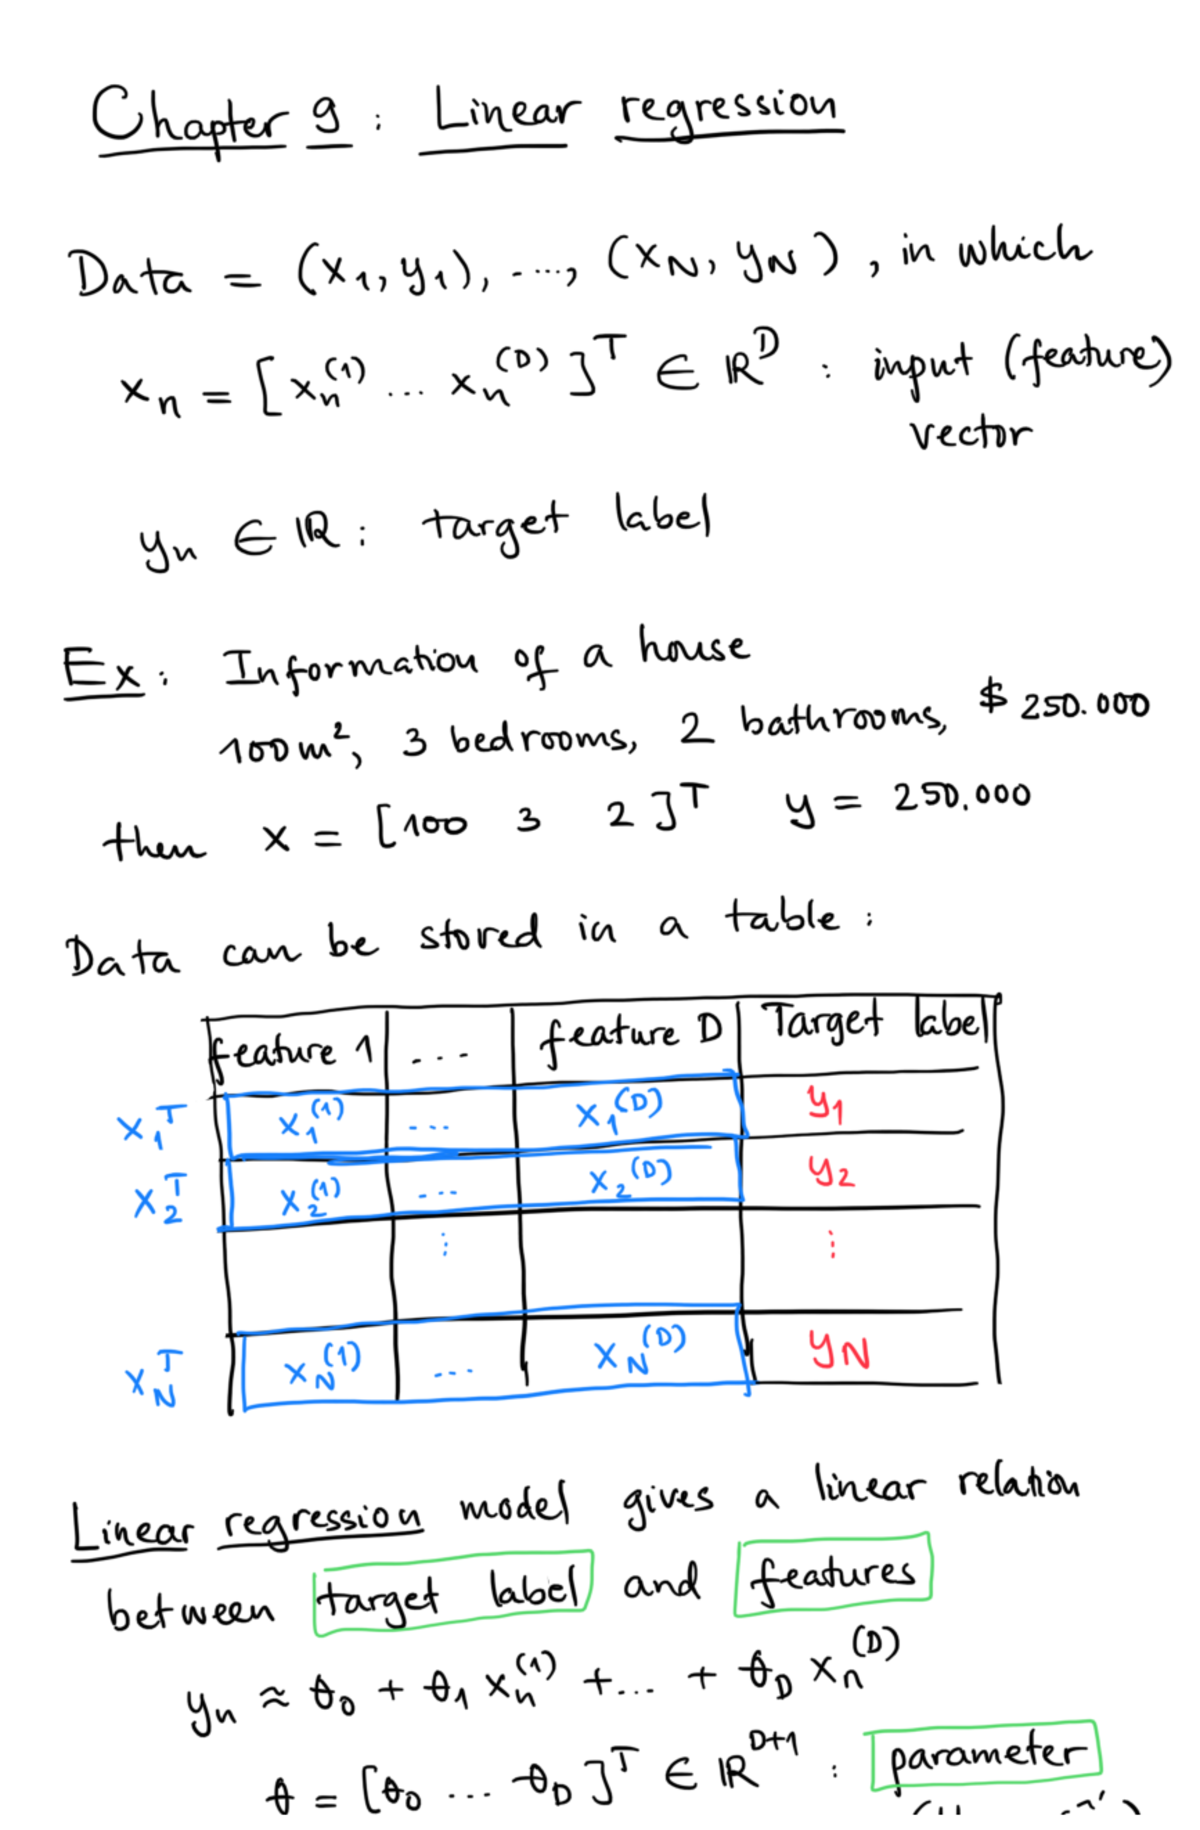 Chapter 9 : Linear regression
Data = (x₁, y₁), ..., (x_N, y_N), in which
x_n = [x_n^(1) ... x_n^(D)]^T ∈ ℝ^D : input (feature)
vector
y_n ∈ ℝ : target label
Ex : Information of a house
100m², 3 bedrooms, 2 bathrooms, $ 250.000
then x = [100 3 2]^T y = 250.000
Data can be stored in a table :
feature 1 ... feature D Target label
x₁^T x₁^(1) ... x₁^(D) y₁
x₂^T x₂^(1) ... x₂^(D) y₂
⋮ ⋮
x_N^T x_N^(1) ... x_N^(D) y_N
Linear regression model gives a linear relation
between target label and features
y_n ≈ θ₀ + θ₁ x_n^(1) + ... + θ_D x_n^(D)
θ = [θ₀ ... θ_D]^T ∈ ℝ^(D+1) : parameter